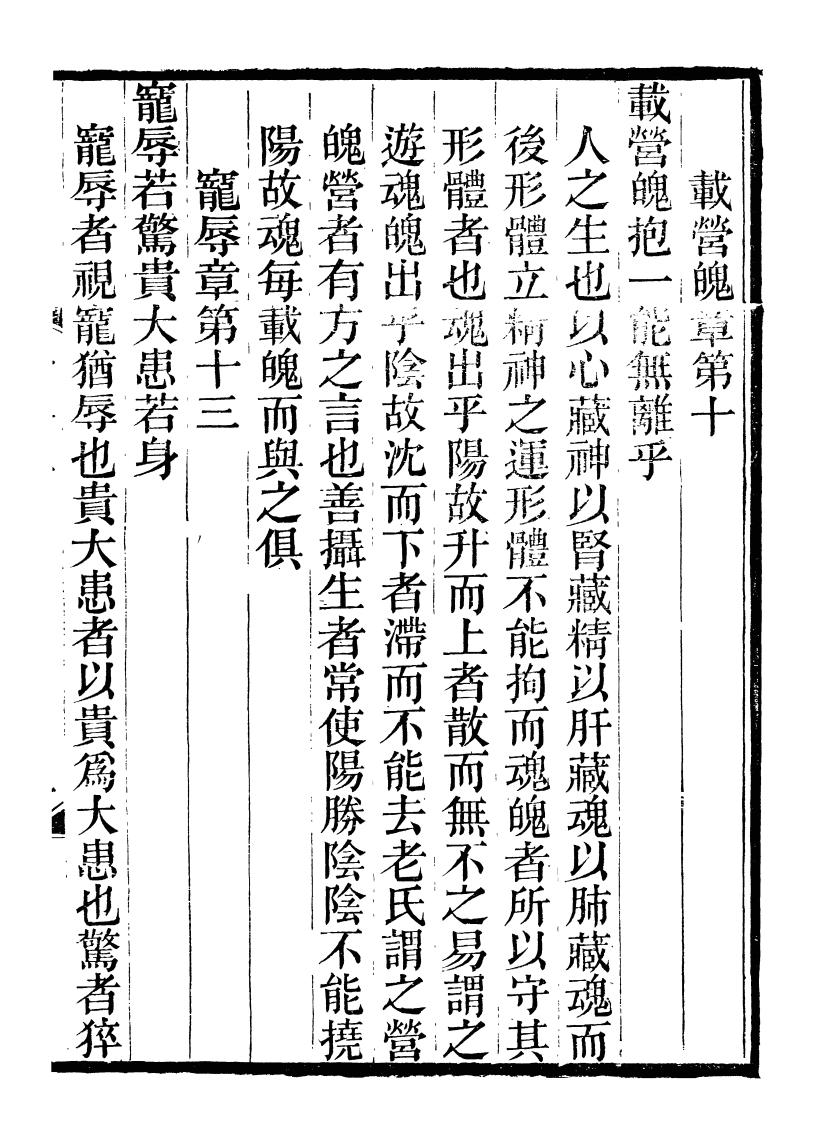 載營魄章第十
載營魄抱一能無離乎
人之生也以心藏神以腎藏精以肝藏魂以肺藏魂而
後形體立精神之運形體不能拘而魂魄者所以守其
形體者也魂出乎陽故升而上者散而無不之易謂之
遊魂魄出乎陰故沈而下者滯而不能去老氏謂之營
魄營者有方之言也善攝生者常使陽勝陰陰不能撓
陽故魂每載魄而與之俱
寵辱章第十三
寵辱若驚貴大患若身
寵辱者視寵猶辱也貴大患者以貴爲大患也驚者猝